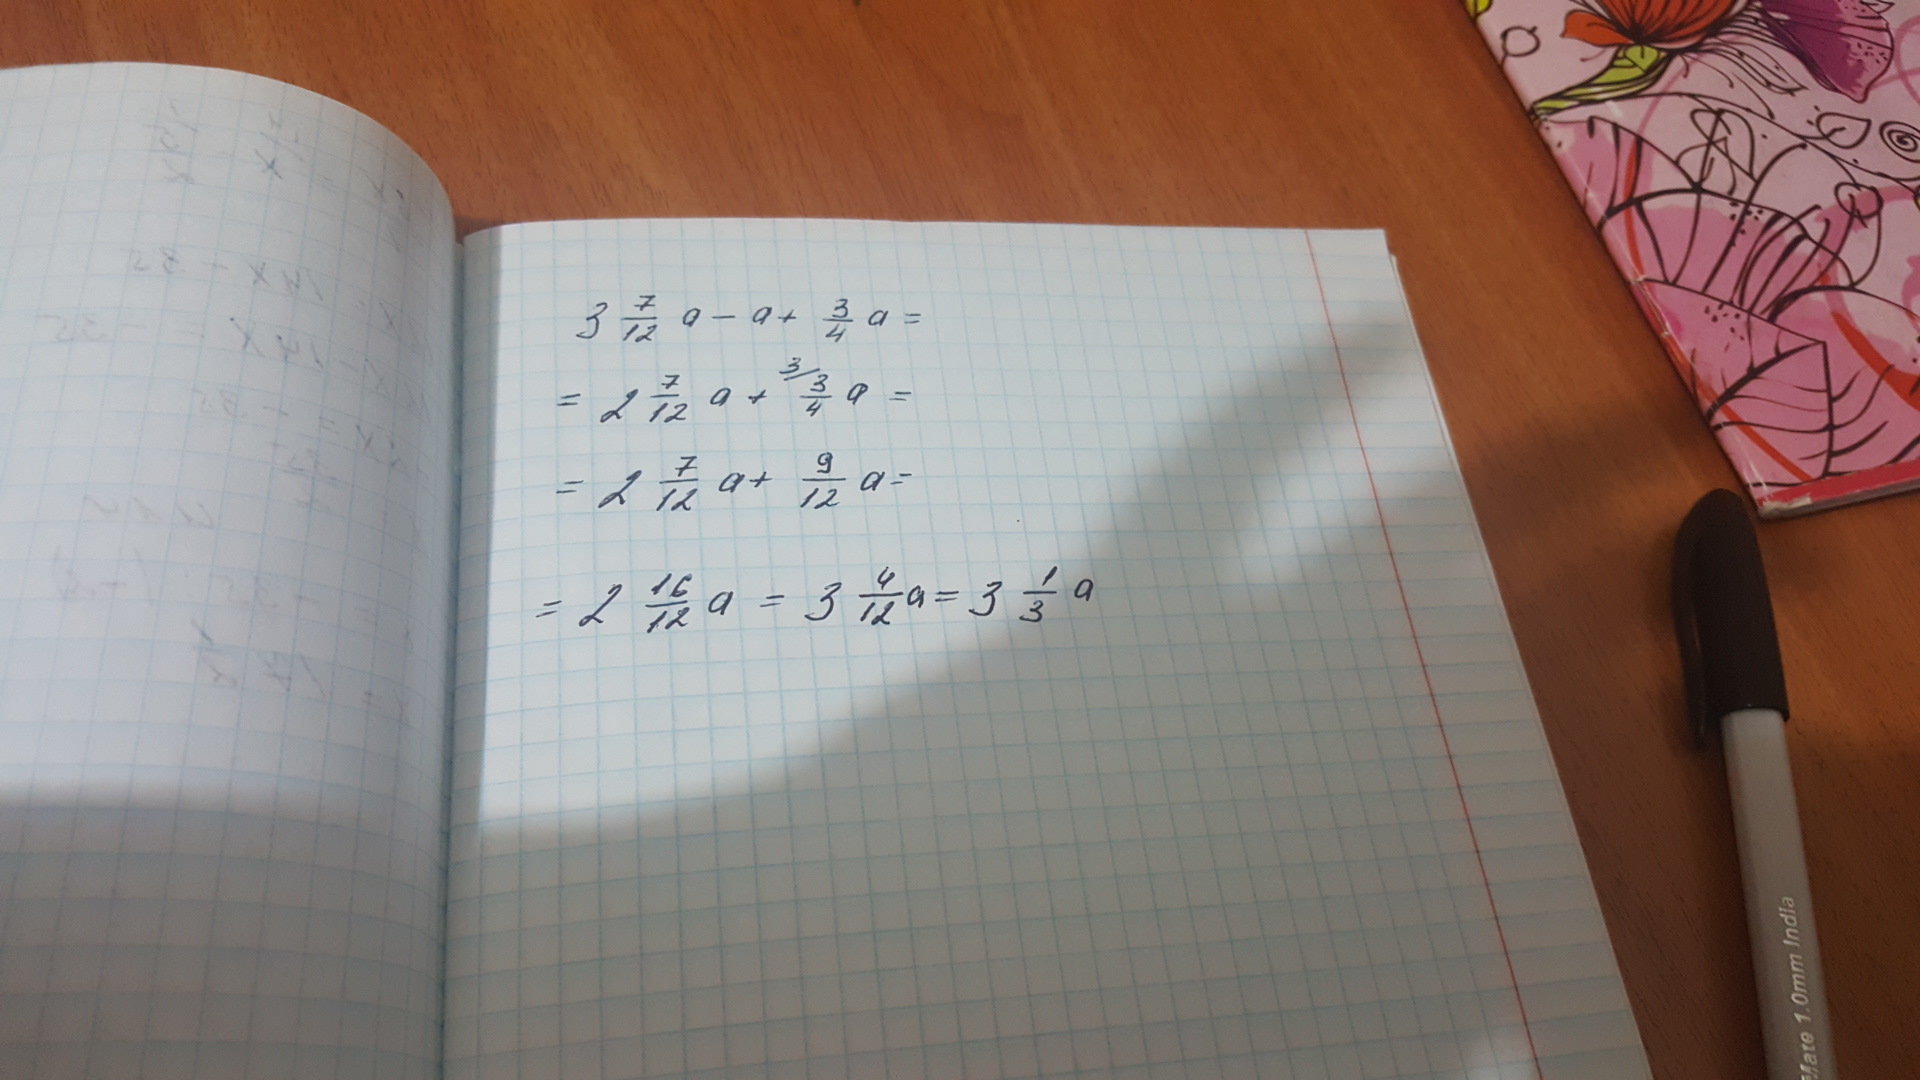 3 7/12 a - a + 3/4 a =
= 2 7/12 a + 3/ 3/4 a =
= 2 7/12 a + 9/12 a =
= 2 16/12 a = 3 4/12 a = 3 1/3 a
Mate 1.0mm India